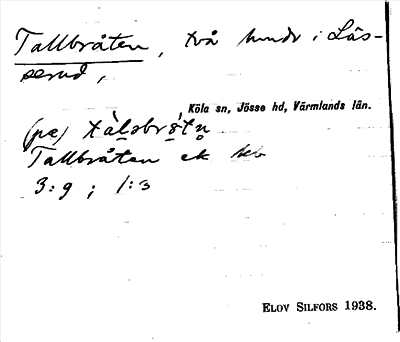 Tallbråten, två hmdr i Läs-
serud,
Köla sn, Jösse hd, Värmlands län.
(pæ) tàlsbrǻtn̥
Tallbråten ek
3:9 ; 1:3
ELOV SILFORS 1938.